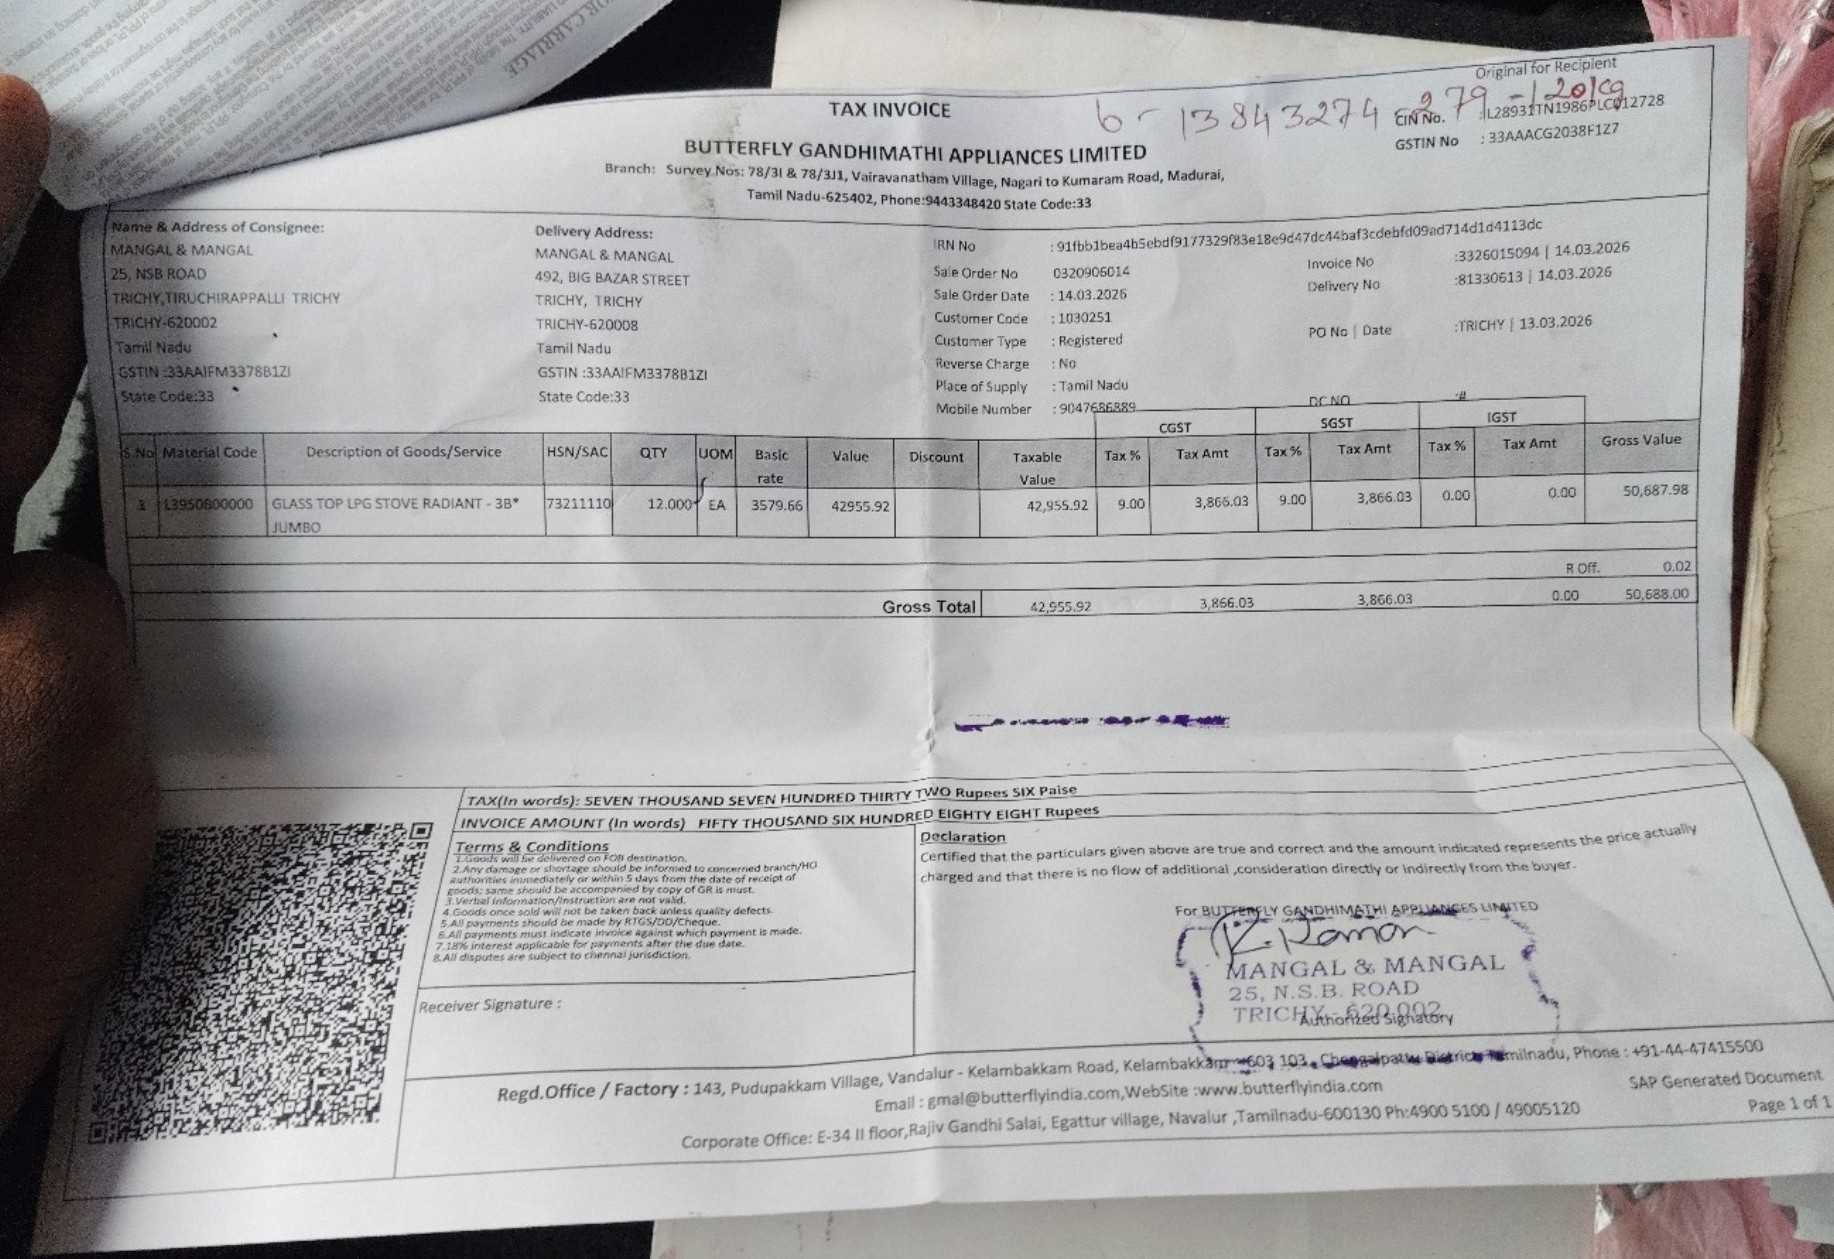 OR CARRIAGE
Original for Recipient
TAX INVOICE
6- 13843274 279 - 120kg
CIN No. :L28931TN1986PLC012728
GSTIN No : 33AAACG2038F1Z7
BUTTERFLY GANDHIMATHI APPLIANCES LIMITED
Branch: Survey Nos: 78/3I & 78/3J1, Vairavanatham Village, Nagari to Kumaram Road, Madurai,
Tamil Nadu-625402, Phone:9443348420 State Code:33
Name & Address of Consignee:
MANGAL & MANGAL
25, NSB ROAD
TRICHY,TIRUCHIRAPPALLI TRICHY
TRICHY-620002
Tamil Nadu
GSTIN :33AAIFM3378B1ZI
State Code:33
Delivery Address:
MANGAL & MANGAL
492, BIG BAZAR STREET
TRICHY, TRICHY
TRICHY-620008
Tamil Nadu
GSTIN :33AAIFM3378B1ZI
State Code:33
IRN No : 91fbb1bea4b5ebdf9177329f83e18e9d47dc44baf3cdebfd09ad714d1d4113dc
Sale Order No 0320906014
Sale Order Date : 14.03.2026
Customer Code : 1030251
Customer Type : Registered
Reverse Charge : No
Place of Supply : Tamil Nadu
Mobile Number : 9047686889
Invoice No :3326015094 | 14.03.2026
Delivery No :81330613 | 14.03.2026
PO No | Date :TRICHY | 13.03.2026
DC NO :#
CGST SGST IGST
S.No Material Code Description of Goods/Service HSN/SAC QTY UOM Basic rate Value Discount Taxable Value Tax % Tax Amt Tax % Tax Amt Tax % Tax Amt Gross Value
L3950800000 GLASS TOP LPG STOVE RADIANT - 3B* 73211110 12.000 EA 3579.66 42955.92 42,955.92 9.00 3,866.03 9.00 3,866.03 0.00 0.00 50,687.98
JUMBO
R Off. 0.02
Gross Total 42,955.92 3,866.03 3,866.03 0.00 50,688.00
TAX(In words): SEVEN THOUSAND SEVEN HUNDRED THIRTY TWO Rupees SIX Paise
INVOICE AMOUNT (In words) FIFTY THOUSAND SIX HUNDRED EIGHTY EIGHT Rupees
Terms & Conditions
1.Goods will be delivered on FOB destination.
2.Any damage or shortage should be informed to concerned branch/HO
authorities immediately or within 5 days from the date of receipt of
goods; same should be accompanied by copy of GR is must.
3.Verbal Information/Instruction are not valid.
4.Goods once sold will not be taken back unless quality defects.
5.All payments should be made by RTGS/DD/Cheque.
6.All payments must indicate invoice against which payment is made.
7.18% interest applicable for payments after the due date.
8.All disputes are subject to chennai jurisdiction.
Receiver Signature :
Declaration
Certified that the particulars given above are true and correct and the amount indicated represents the price actually
charged and that there is no flow of additional ,consideration directly or indirectly from the buyer.
For BUTTERFLY GANDHIMATHI APPLIANCES LIMITED
R. Raman
MANGAL & MANGAL
25, N.S.B. ROAD
TRICHY - 620 002
Authorized Signatory
Regd.Office / Factory : 143, Pudupakkam Village, Vandalur - Kelambakkam Road, Kelambakkam - 603 103. Chengalpattu District, Tamilnadu, Phone : +91-44-47415500
Email : gmal@butterflyindia.com,WebSite :www.butterflyindia.com
Corporate Office: E-34 II floor,Rajiv Gandhi Salai, Egattur village, Navalur ,Tamilnadu-600130 Ph:4900 5100 / 49005120
SAP Generated Document
Page 1 of 1